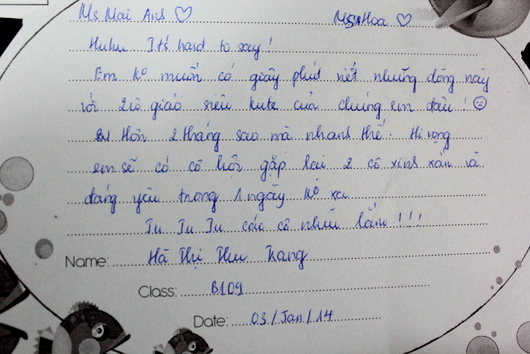 Ms Mai Anh ♡ Ms Hoa ♡
Huhu It's hard to say!
Em ko muốn có giây phút viết những dòng này
với 2 cô giáo siêu kute của chúng em đâu! ☹
Hơn 2 tháng sao mà nhanh thế. Hi vọng
em sẽ có cơ hội gặp lại 2 cô xinh xắn và
đáng yêu trong 1 ngày ko xa
Iu Iu Iu các cô nhìu lắm!!!
Name: Hà Thị Thu Trang
Class: B109
Date: 03/Jan/14